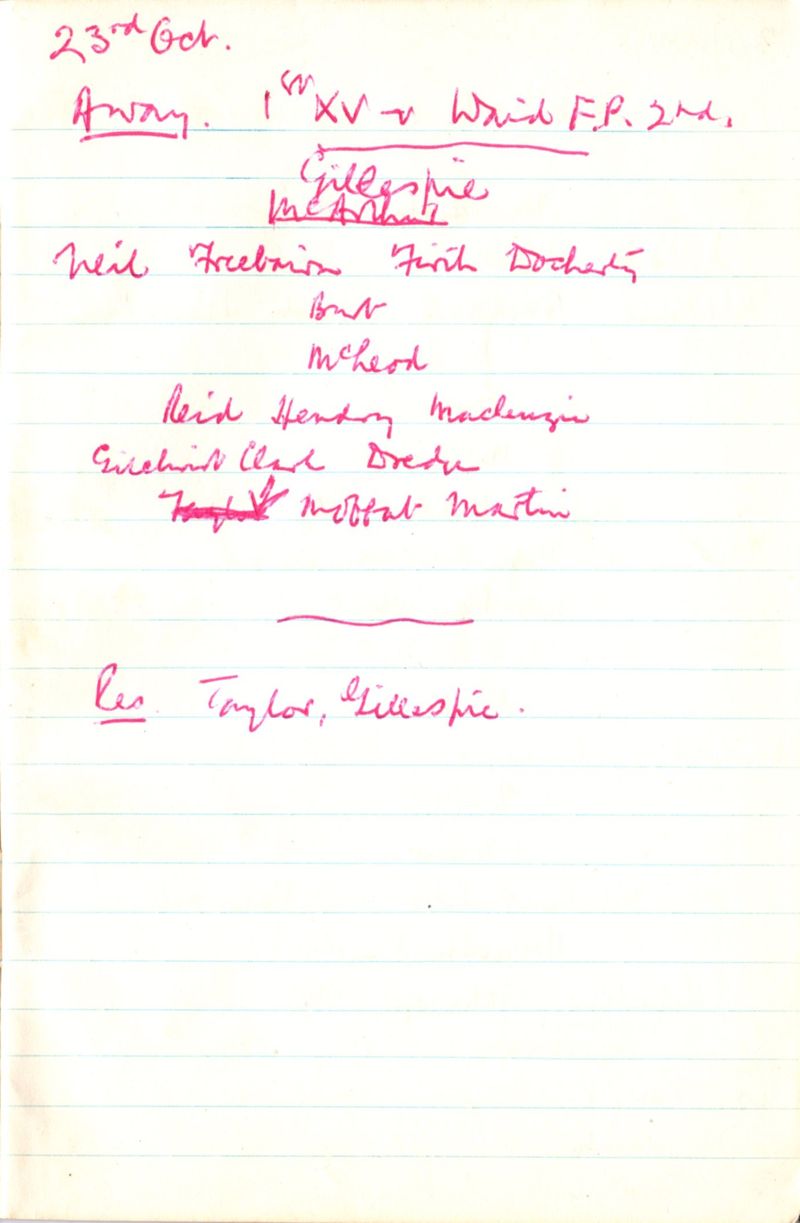 23rd Oct.
Away. 1st XV v Waid F.P. 2nd.
Gillespie
McArthur
Neil Freebairn Firth Docherty
Burt
McLeod
Reid Hendry Mackenzie
Gilchrist Clark Dredge
Taylor Moffat Martin
Res. Taylor, Gillespie.